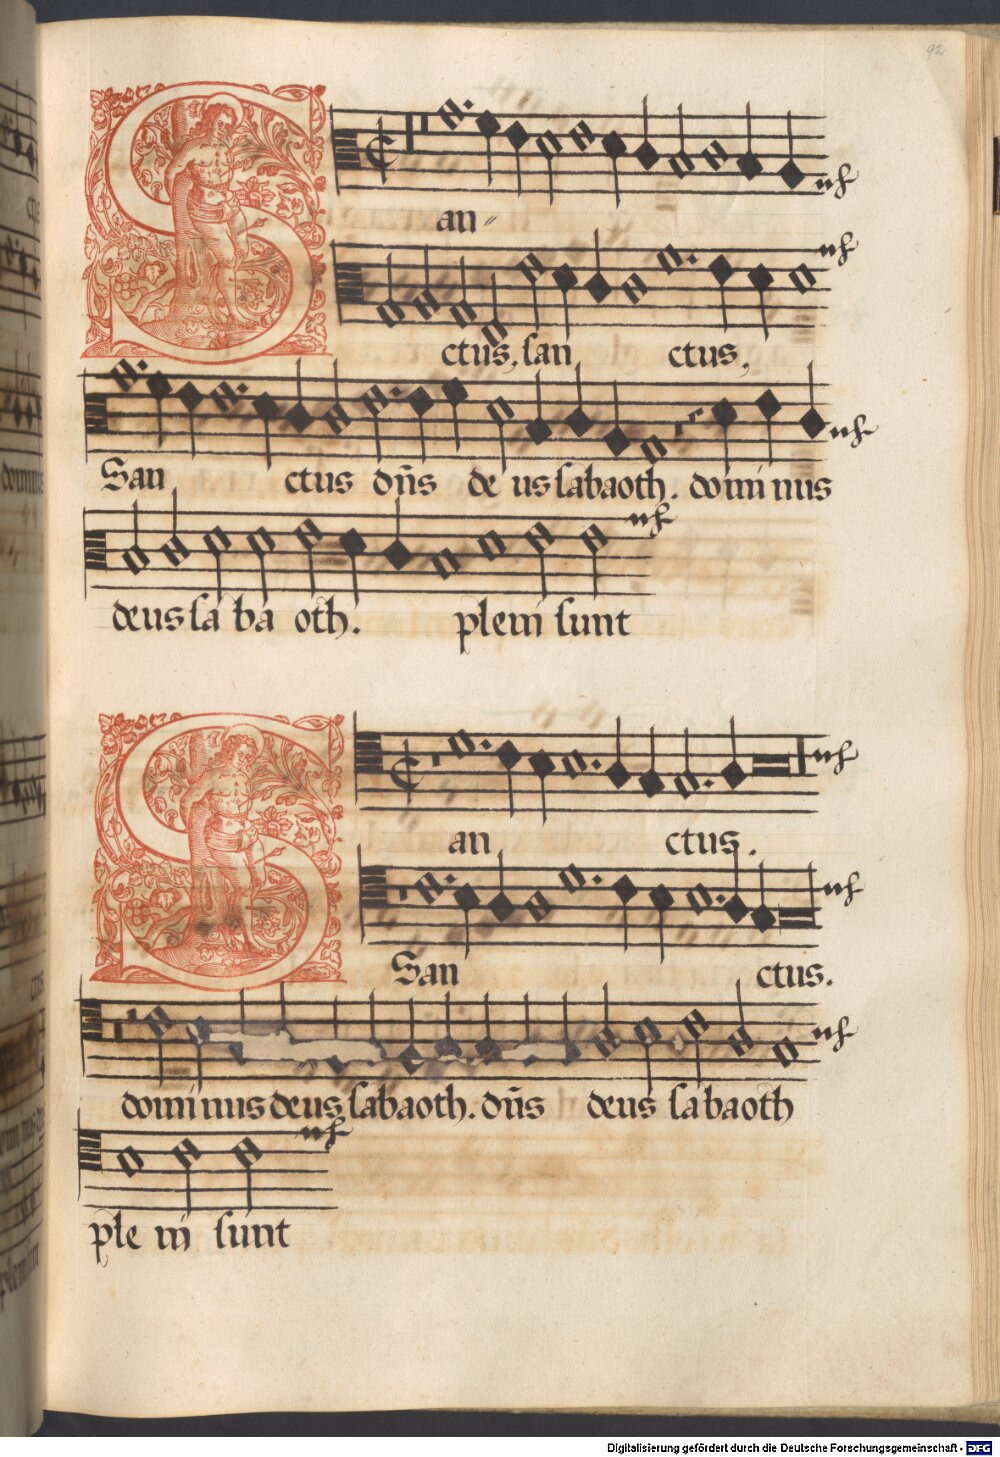 92
S
an "
ctus, san ctus,
San ctus dn̄s de us sabaoth. dominus
deus sa ba oth. pleni sunt
S
an ctus.
San ctus.
dominus deus sabaoth. dn̄s deus sabaoth
ple ni sunt
Digitalisierung gefördert durch die Deutsche Forschungsgemeinschaft - DFG